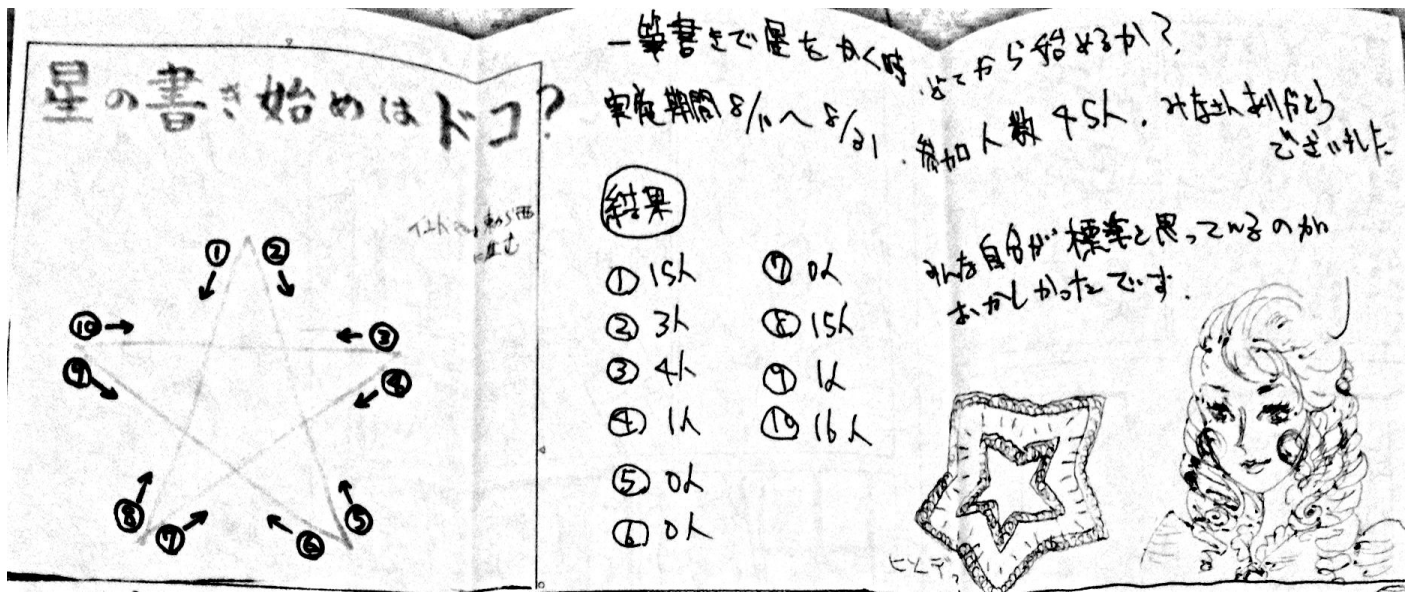 星の書き始めはドコ?
① ②
⑩ ③
⑨ ④
⑧ ⑦ ⑥ ⑤
一筆書きで星をかく時、どこから始めるか?
実施期間 8/11〜8/31、参加人数 45人、みなさんありがとう
ございました
結果
① 15人
② 3人
③ 4人
④ 1人
⑤ 0人
⑥ 0人
⑦ 0人
⑧ 15人
⑨ 1人
⑩ 16人
みんな自分が標準と思っているのが
おかしかったです。